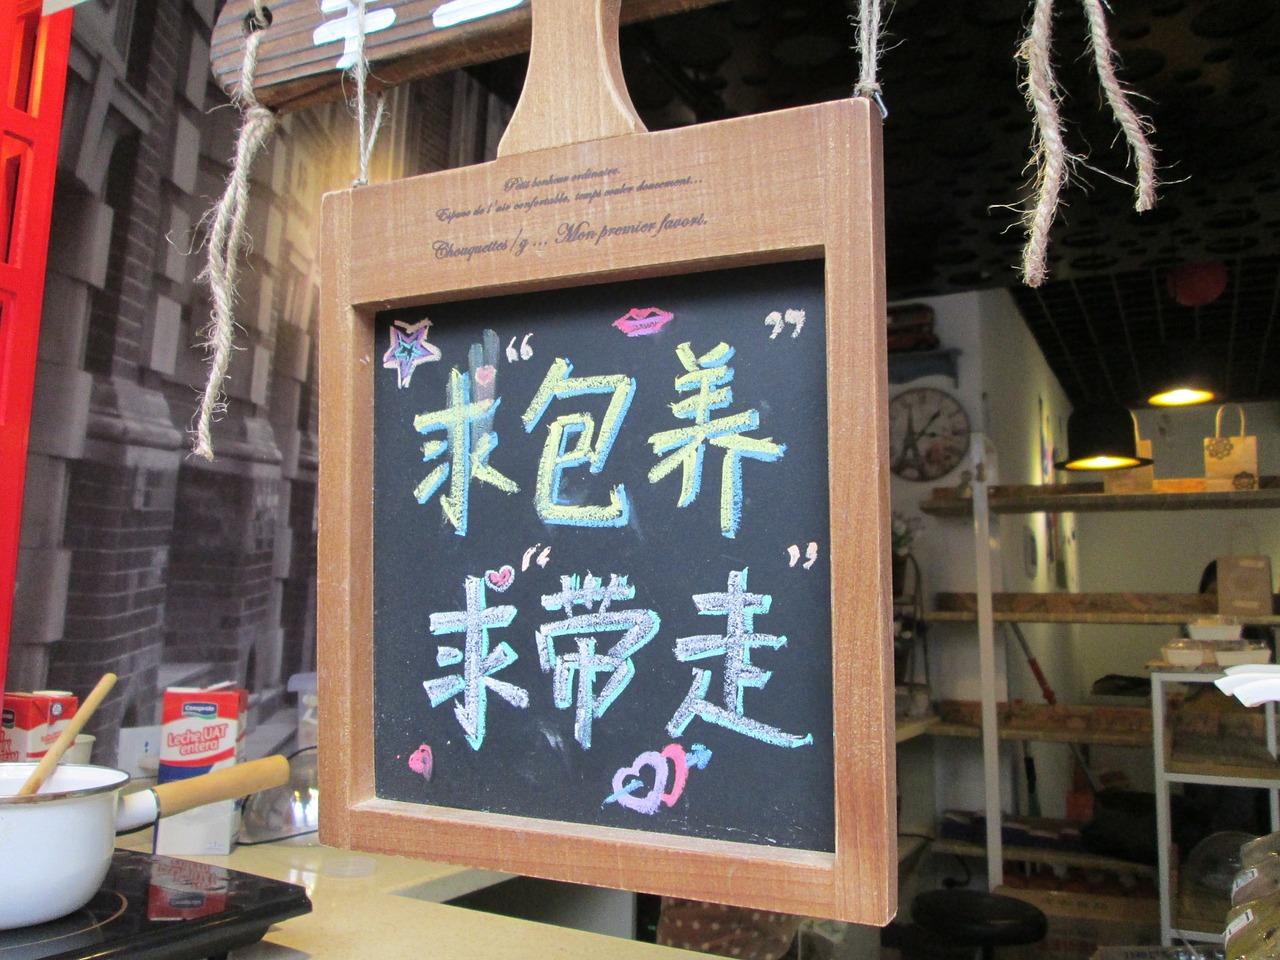 Petit bonheur ordinaire.
Espace de l'air confortable, temps couler doucement...
Chouquettes /g ... Mon premier favori.
求“包养”
求“带走”
Leche UAT
entera